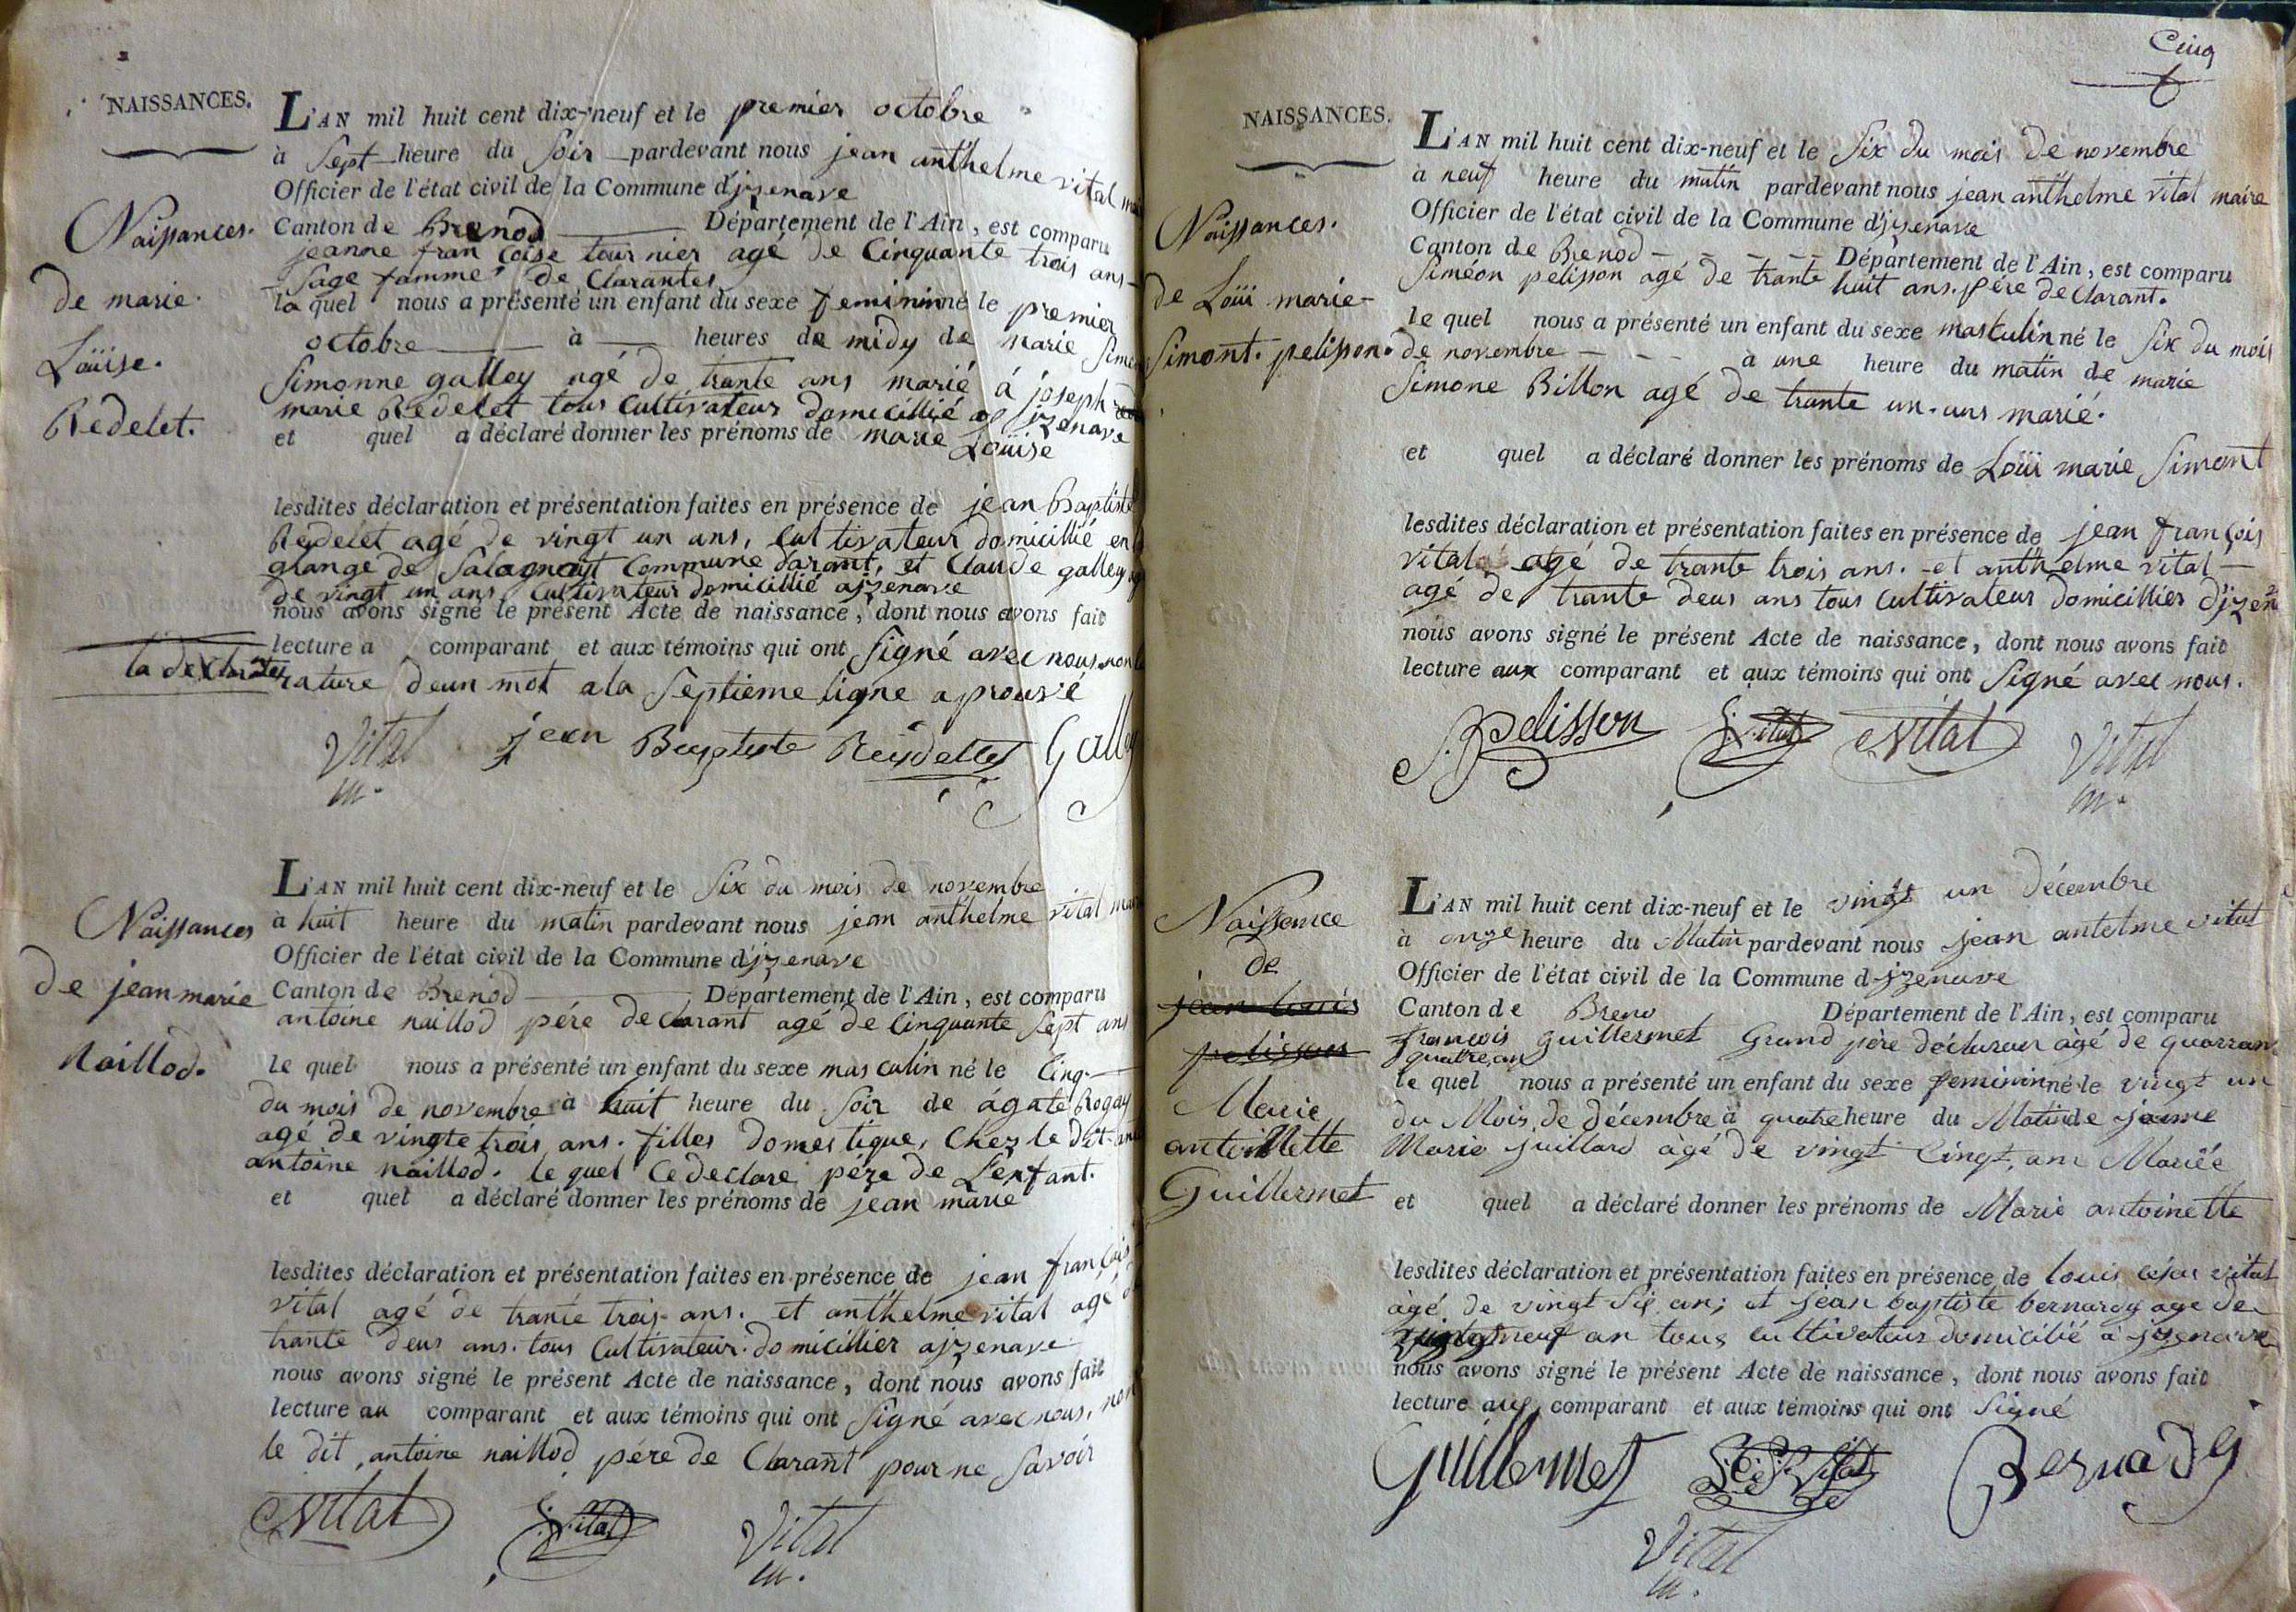 NAISSANCES.
Naissances.
de marie
Loüise.
Redelet.
L'AN mil huit cent dix-neuf et le premier octobre
à Sept heure du Soir pardevant nous jean anthelme vital
Officier de l'état civil de la Commune d'jzenave
Canton de Brenod Département de l'Ain, est comparu
jeanne francoise tournier agé de Cinquante trois ans
Sage famme de Clarantes
la quel nous a présenté un enfant du sexe feminin né le premier
octobre à heures de midy de marie
Simonne galley agé de trante ans marié à joseph
marie Redelet tous Cultivateur domicillié jzenave
et quel a déclaré donner les prénoms de marie
Loüise
lesdites déclaration et présentation faites en présence de jean Baptiste
Redelet agé de vingt un ans, Cultivateur domicillié en
grange de Commune darant, et Claude galley
de vingt un ans Cultivateur domicillié ajzenave
nous avons signé le présent Acte de naissance, dont nous avons fait
lecture a comparant et aux témoins qui ont Signé avec nous non
la declarates
rature deun mot a la Septieme ligne aprouvé
Vital jean Baptiste Reydellet Galley
m.
Naissances
de jean marie
Naillod.
L'AN mil huit cent dix-neuf et le Six du mois de novembre
à huit heure du matin pardevant nous jean anthelme vital
Officier de l'état civil de la Commune d'jzenave
Canton de Brenod Département de l'Ain, est comparu
antoine naillod pére de Clarant agé de Cinquante Sept ans
le quel nous a présenté un enfant du sexe masculin né le Cinq
du mois de novembre à huit heure du Soir de ágate Rogay
agé de vingte trois ans. filles domestique, Chez le dit
antoine naillod. le quel Ce declare pére de L'enfant.
et quel a déclaré donner les prénoms de jean marie
lesdites déclaration et présentation faites en présence de jean françois
vital agé de trante trois ans. et anthelme vital agé
trante deus ans. tous Cultivateur domicillier ajzenave
nous avons signé le présent Acte de naissance, dont nous avons fait
lecture au comparant et aux témoins qui ont Signé avec nous,
le dit antoine naillod pére de Clarant pour ne Savoir
Vital Vital Vital
m.
Cinq
NAISSANCES.
Naissances.
de Loüi marie
Simont. pelisson.
L'AN mil huit cent dix-neuf et le Six du mois de novembre
à neuf heure du matin pardevant nous jean anthelme vital maire
Officier de l'état civil de la Commune d'jzenave
Canton de Brenod Département de l'Ain, est comparu
Siméon pelisson agé de trante huit ans. pére de Clarant.
le quel nous a présenté un enfant du sexe masculin né le Six du mois
de novembre à une heure du matin de marie
Simone Billon agé de trante un ans marié.
et quel a déclaré donner les prénoms de Loüi marie Simont
lesdites déclaration et présentation faites en présence de jean françois
vital agé de trante trois ans. et anthelme vital
agé de trante deus ans tous Cultivateur domicillier
nous avons signé le présent Acte de naissance, dont nous avons fait
lecture aux comparant et aux témoins qui ont Signé avec nous.
S. pelisson Vital Vital Vital
m.
Naissence
de
jean louis
pelisson
Marie
antoinette
Guillermet
L'AN mil huit cent dix-neuf et le vingt un décembre
à onze heure du Matin pardevant nous jean antelme vital
Officier de l'état civil de la Commune d jzenave
Canton de Breno Département de l'Ain, est comparu
françois guillermet Grand père déclaraur àgé de quarran
quatre an
le quel nous a présenté un enfant du sexe feminin né le vingt un
du Mois de décembre à quatre heure du Matin de jeanne
Marie juillard àgé de vingt Cingt an Mariée
et quel a déclaré donner les prénoms de Marie antoinette
lesdites déclaration et présentation faites en présence de louis vital
àgé de vingt Six an; et jean baptiste bernardy age de
neuf an tous cultivateur domicilié à jzenave
nous avons signé le présent Acte de naissance, dont nous avons fait
lecture aux comparant et aux témoins qui ont Signé
Guillermet Vital Bernady
Vital
m.